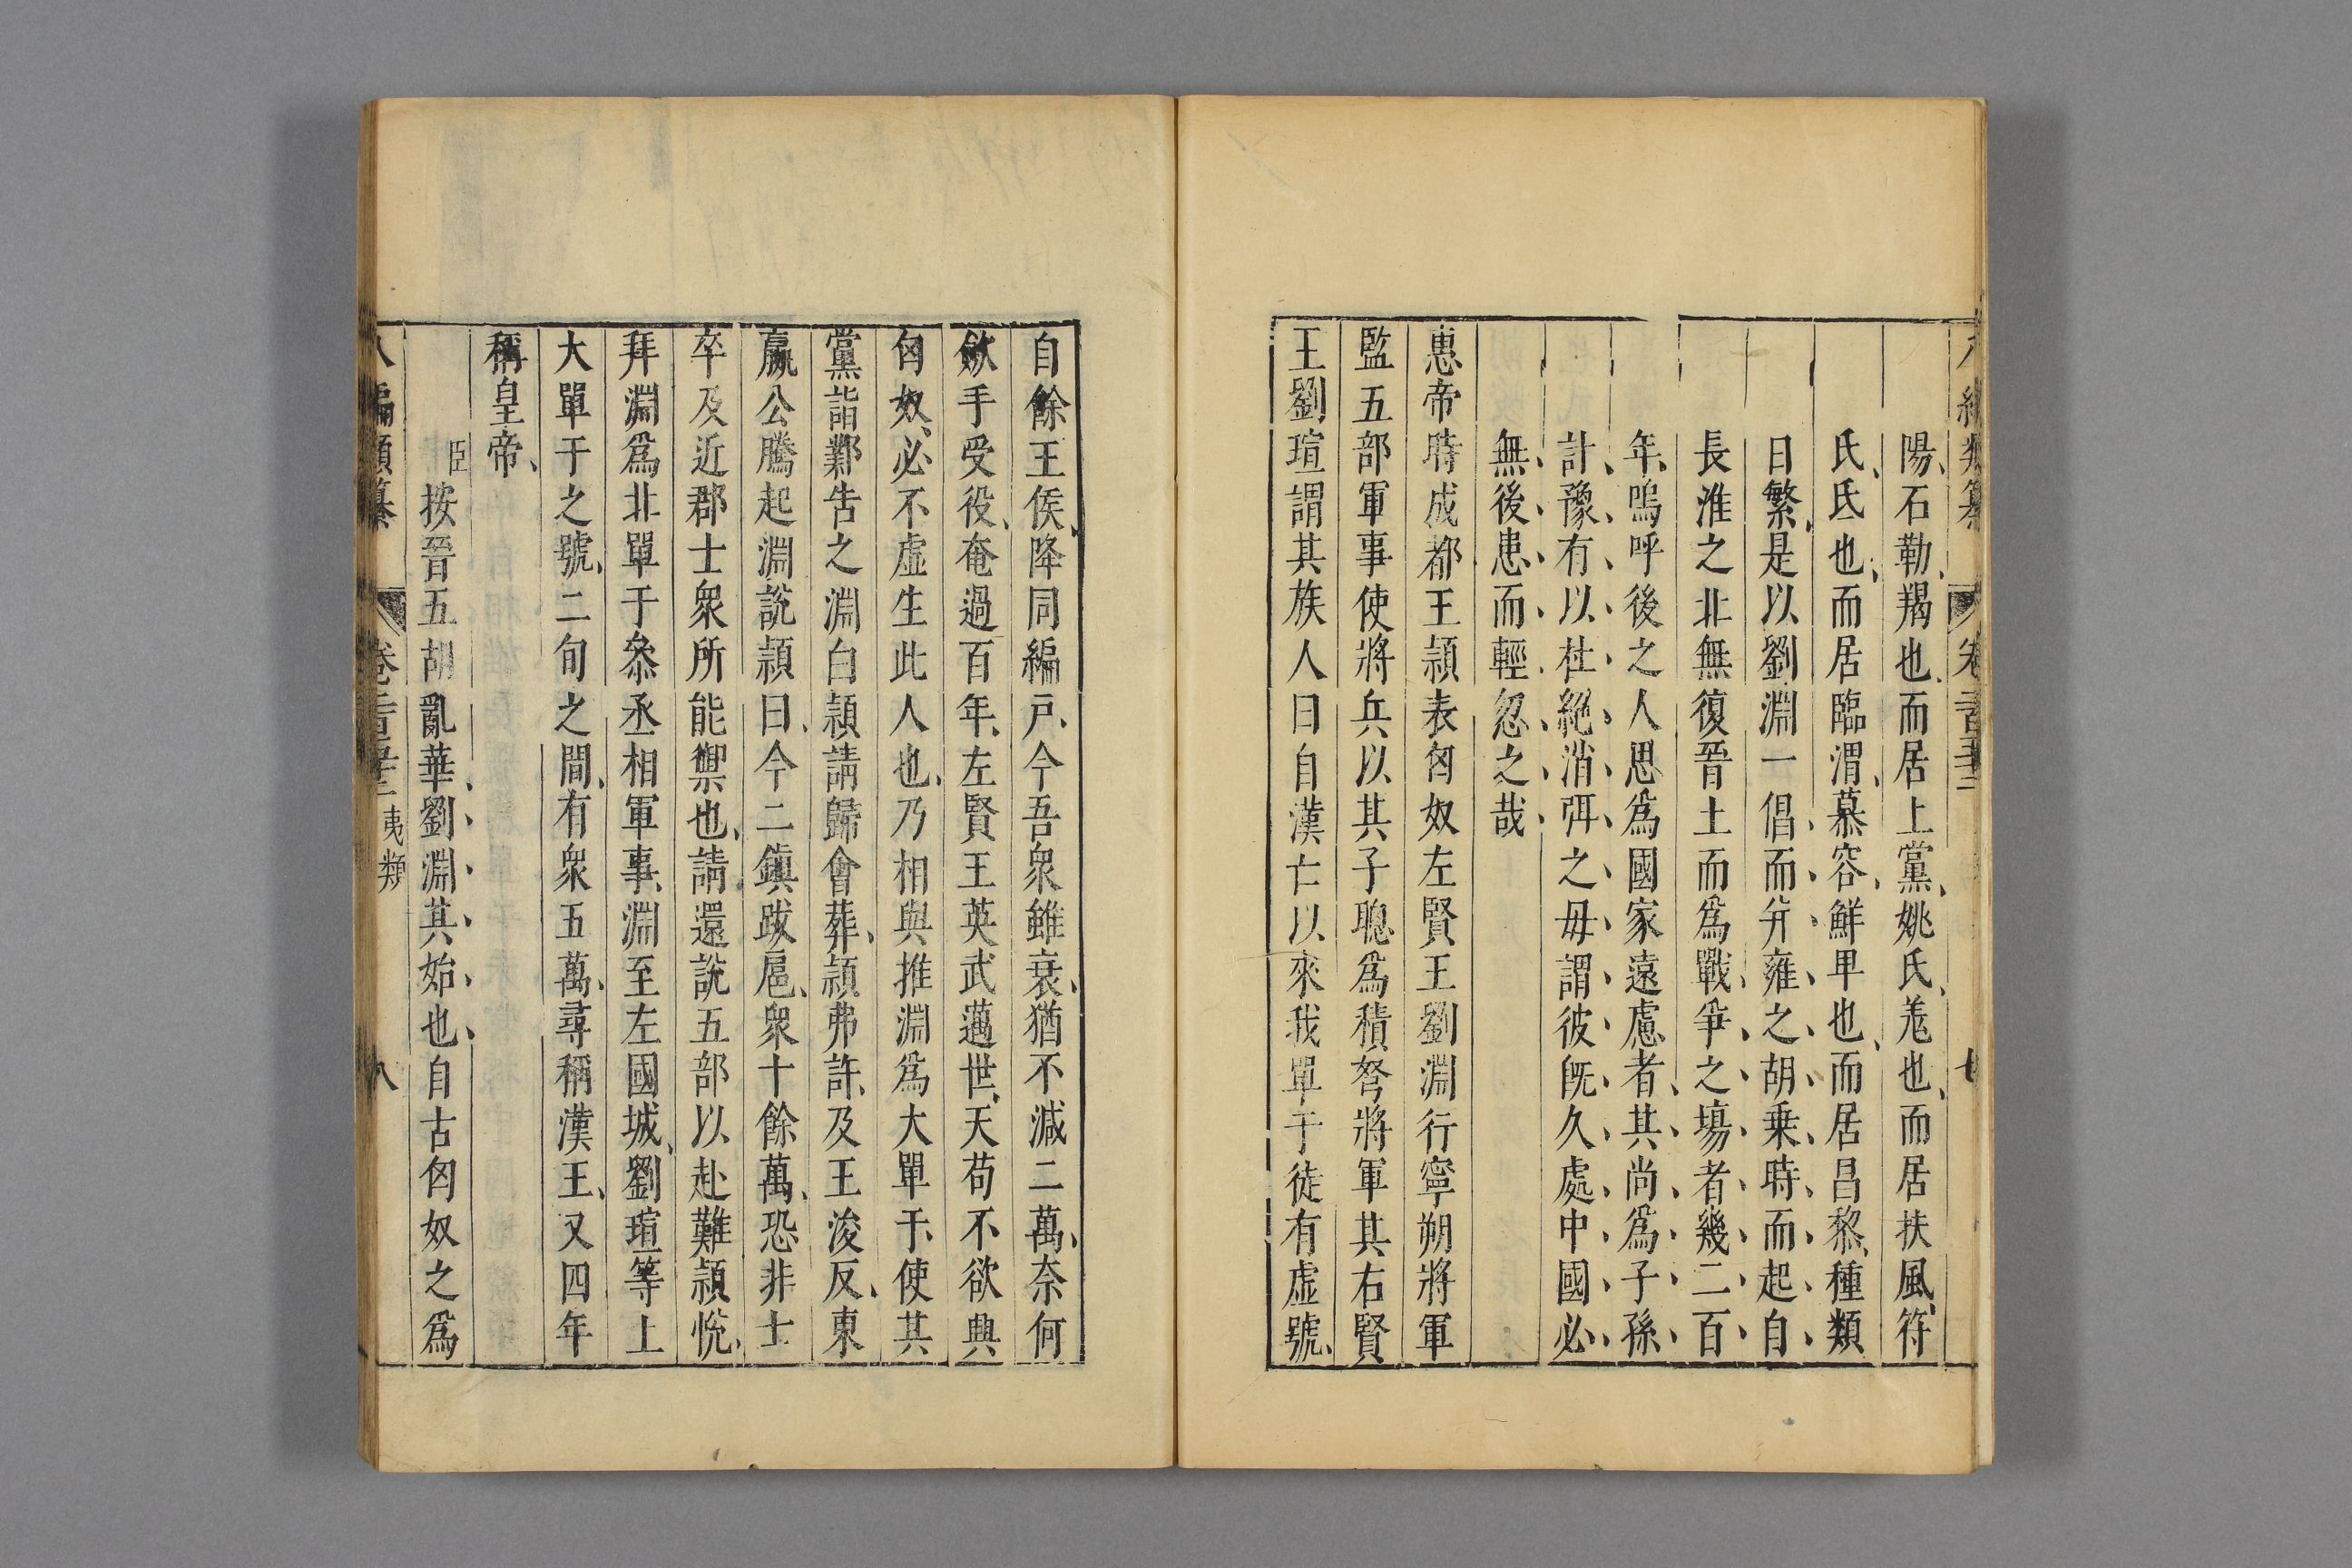 八編類纂 卷二百三十三 七
陽、石勒、羯也、而居上黨、姚氏、羗也、而居扶風、符
氏、氐也、而居臨渭、慕容、鮮卑也、而居昌黎、種類
日繁、是以劉淵一倡而並雍之胡乗時而起、自
長淮之北無復晉土而爲戰爭之場者幾二百
年、嗚呼後之人思爲國家遠慮者、其尚爲子孫
計、豫有以杜絶消弭之、毋謂彼旣久處中國必
無後患而輕忽之哉
惠帝時成都王頴表匈奴左賢王劉淵行寧朔將軍
監五部軍事使將兵以其子聰爲積弩將軍其右賢
王劉瑄謂其族人曰自漢亡以來我單于徒有虛號、
自餘王侯、降同編戸、今吾衆雖衰、猶不減二萬、奈何
歛手受役、奄過百年、左賢王英武邁世、天苟不欲興
匈奴、必不虛生此人也、乃相與推淵爲大單于、使其
黨詣鄴告之淵白頴請歸會葬、頴弗許、及王浚反、東
嬴公騰起淵說頴曰、今二鎮跋扈、衆十餘萬、恐非士
卒及近郡士衆所能禦也、請還說五部以赴難頴悅、
拜淵爲北單于叅丞相軍事、淵至左國城、劉瑄等上
大單于之號、二旬之間、有衆五萬、尋稱漢王、又四年
稱皇帝、
臣按晉五胡亂華、劉淵其始也、自古匈奴之爲
八編類纂 卷二百三十三 夷類 八